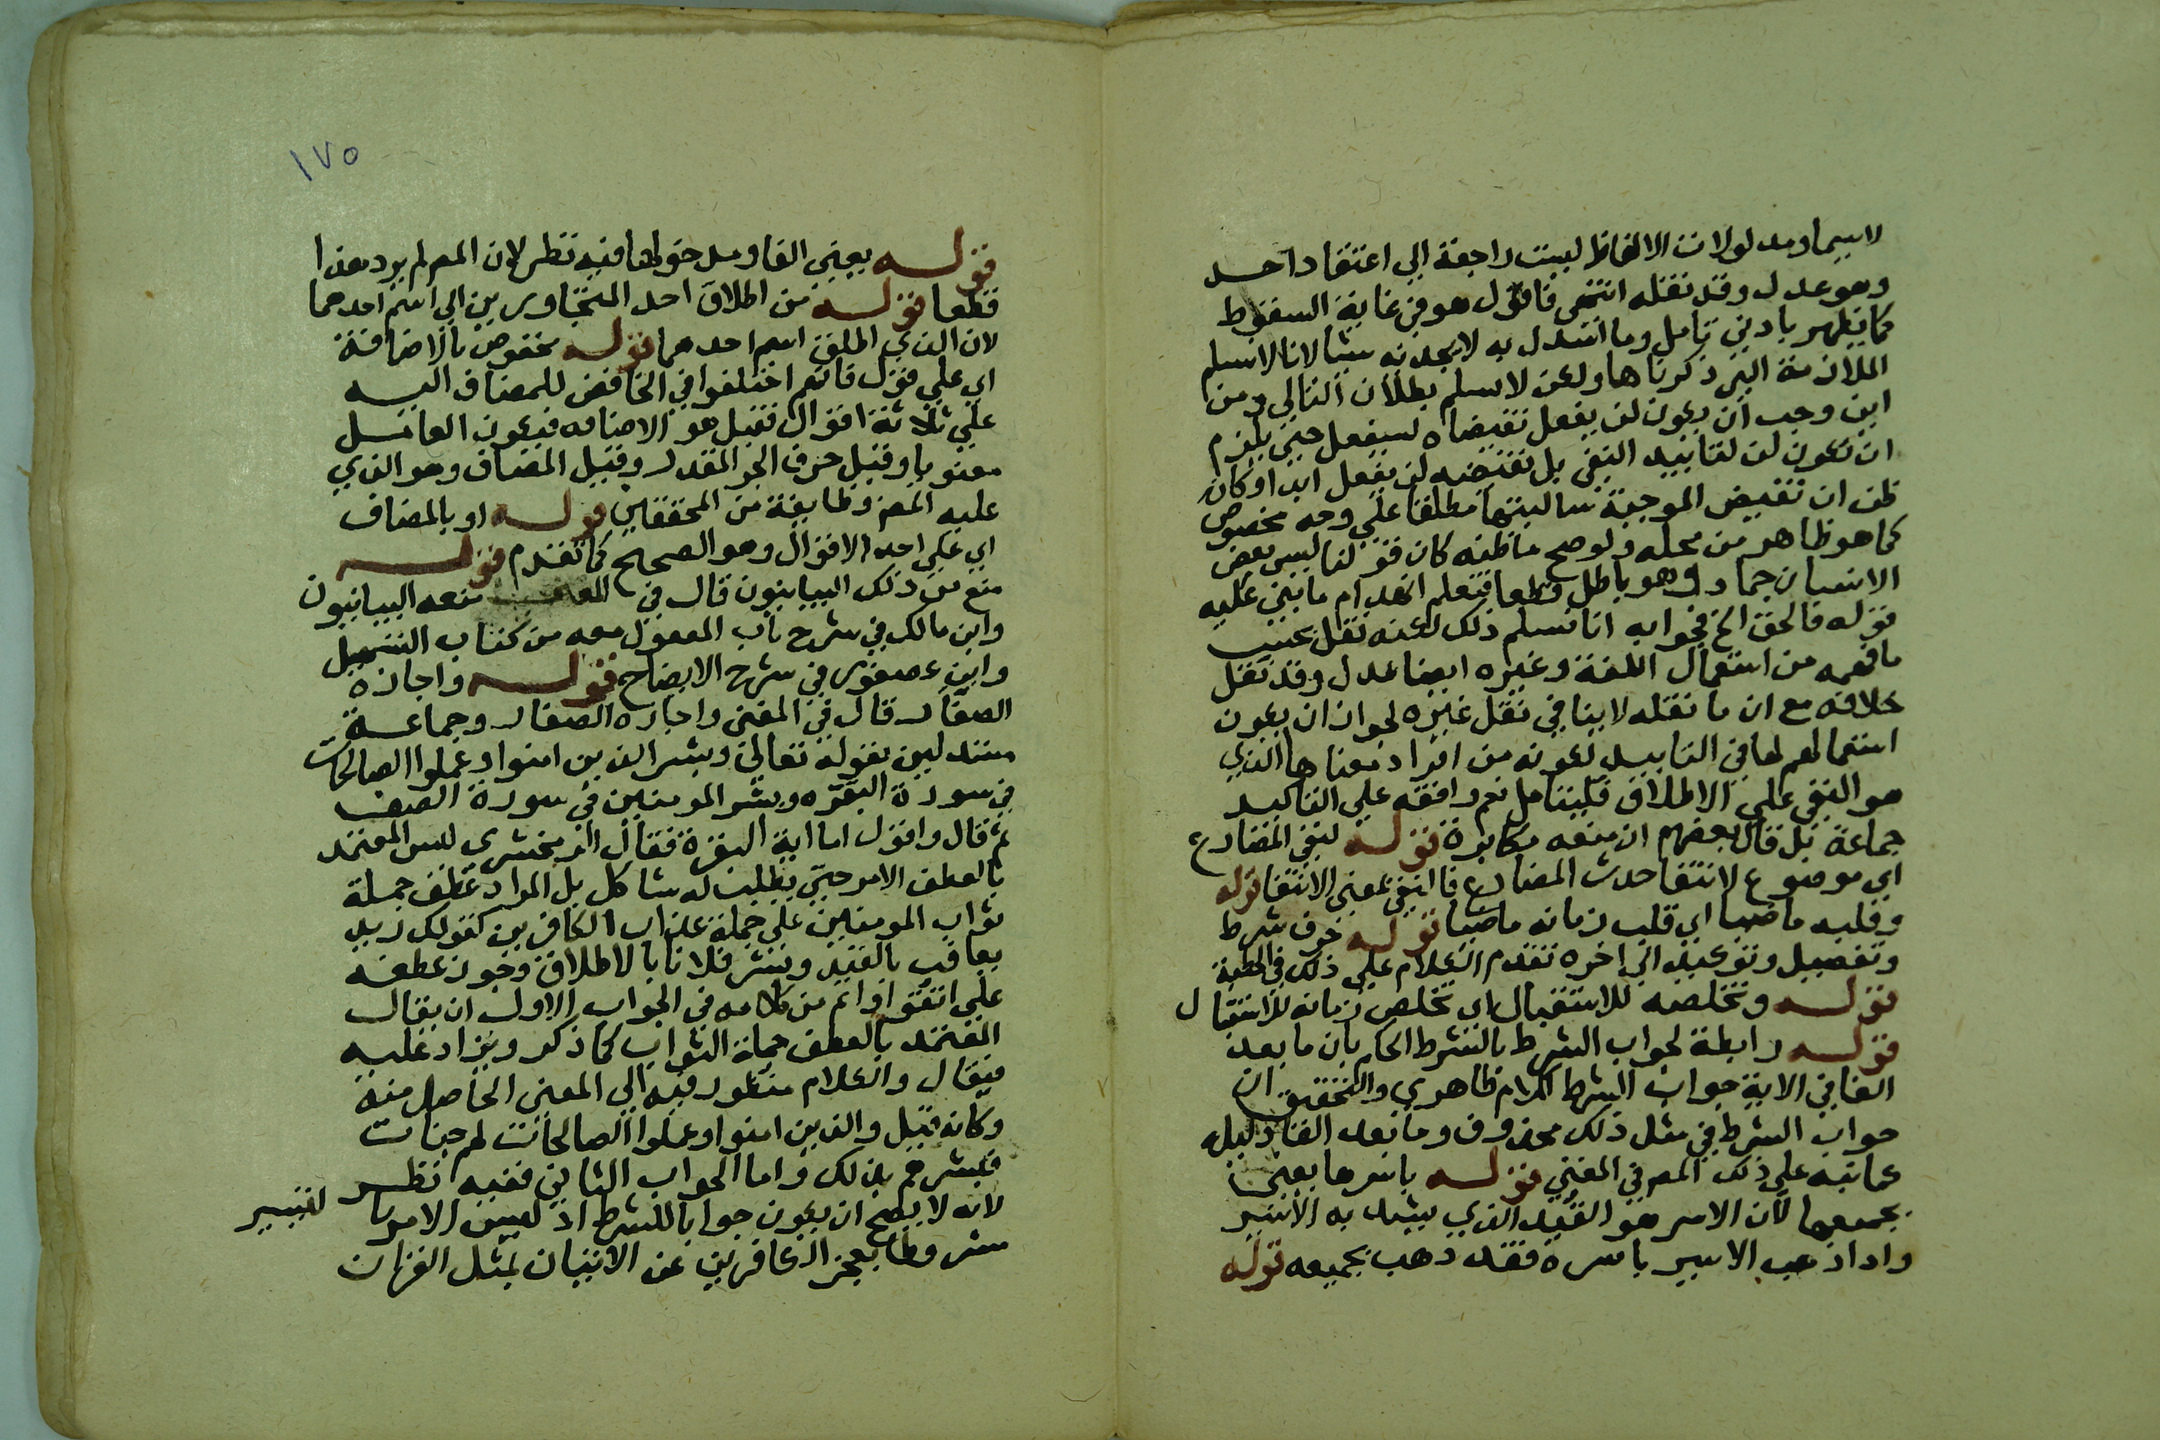 لاسيما ومدلولات الالفاظ ليست راجعة الي اعتقاد احد
وهو عدل وقد نقله انتهى فاقول هو في غاية السقوط
كما يظهر بادني تامل وما استدل به لا يجديه شيا لانا لا نسلم
الملازمة التي ذكرناها ولئن لا نسلم بطلان التالي ومن
اين وجب ان يكون لن يفعل نقيضاه سيفعل حتي يلزم
ان تكون لن لتابيد النفي بل نقيضه لن يفعل ابدا وكان
ظن ان نقيض الموجبة سالبتها مطلقا علي وجه مخصوص
كما هو ظاهر من محله ولو صح ما ظنه كان قولنا ليس بعض
الانسان جماد وهو باطل قطعا فتعلم انهدام ما بني عليه
قوله فالحق الخ فجوابه انا نسلم ذلك لكنه نقل بحسب
ما فهمه من استعمال اللغة وغيره ايضا عدل وقد نقل
خلافه مع ان ما نقله لا ينافي نقل غيره لجواز ان يكون
استعمالهم لها في التابيد لكونه من افراد معناها الذي
هو النفي علي الاطلاق فليتامل نعم وافقه علي التاكيد
جماعة بل قال بعضهم ان منعه مكابرة قوله لنفي المضارع
اي موضوع لانتفا حدث المضارع فالنفي بمعني الانتفا قوله
وقلبه ماضيا اي قلب زمانه ماضيا قوله حرف شرط
وتفصيل وتوكيد الي اخره تقدم الكلام علي ذلك في الخطبة
قوله وتخلصه للاستقبال اي تخلص زمانه للاستقبال
قوله رابطة لجواب الشرط بالشرط الحكم بان ما بعد
الفا في الاية جواب الشرط كلام ظاهري والتحقيق ان
جواب الشرط في مثل ذلك محذوف وما بعد الفا دليله
كما نبه علي ذلك المص في المغني قوله باسرها يعني
بجميعها لان الاسر هو القيد الذي يشد به الاسير
واذا ذهب الاسير باسره فقد ذهب بجميعه قوله
١٧٥
قوله يعني الفا ومدخولها فيه نظر لان المص لم يرد هذا
قطعا قوله من اطلاق احد المتجاورين الي اسم احدهما
لان الذي اطلق اسم احدهما قوله مخفوض بالاضافة
اي علي قول فانهم اختلفوا في الخافض للمضاف اليه
علي ثلاثة اقوال فقيل هو الاضافه فيكون العامل
معنويا وقيل حرف الجر المقدر وقيل المضاف وهو الذي
عليه المص وطايفة من المحققين قوله او بالمضاف
اي علي احد الاقوال وهو الصحيح كما تقدم قوله
منع من ذلك البيانيون قال في المغني منعه البيانيون
وابن مالك في شرح باب المفعول معه من كتاب التسهيل
وابن عصفور في شرح الايضاح قوله واجازه
الصفار قال في المغني واجازه الصفار وجماعة
مستدلين بقوله تعالى وبشر الذين امنوا وعملوا الصالحات
في سورة البقره وبشر المومنين في سورة الصف
ثم قال واقول اما اية البقرة فقال الزمخشري ليس المعتمد
بالعطف الامر حتي يطلب له مشاكل بل المراد عطف جملة
ثواب المومنين علي جملة عذاب الكافرين كقولك زيد
يعاقب بالقيد وبشر فلانا بالاطلاق وجوز عطفه
علي اتقوا واتم من كلامه في الجواب الاول ان يقال
المعتمد بالعطف جملة الثواب كما ذكر ويزاد عليه
فيقال والكلام منظور فيه الي المعني الحاصل منه
وكانه قيل والذين امنوا وعملوا الصالحات لهم جنات
فبشرهم بذلك واما الجواب الثاني ففيه نظر
لانه لا يصح ان يكون جوابا للشرط اذ ليس الامر بالتبشير
مشروطا بعجز الكافرين عن الاتيان بمثل القران